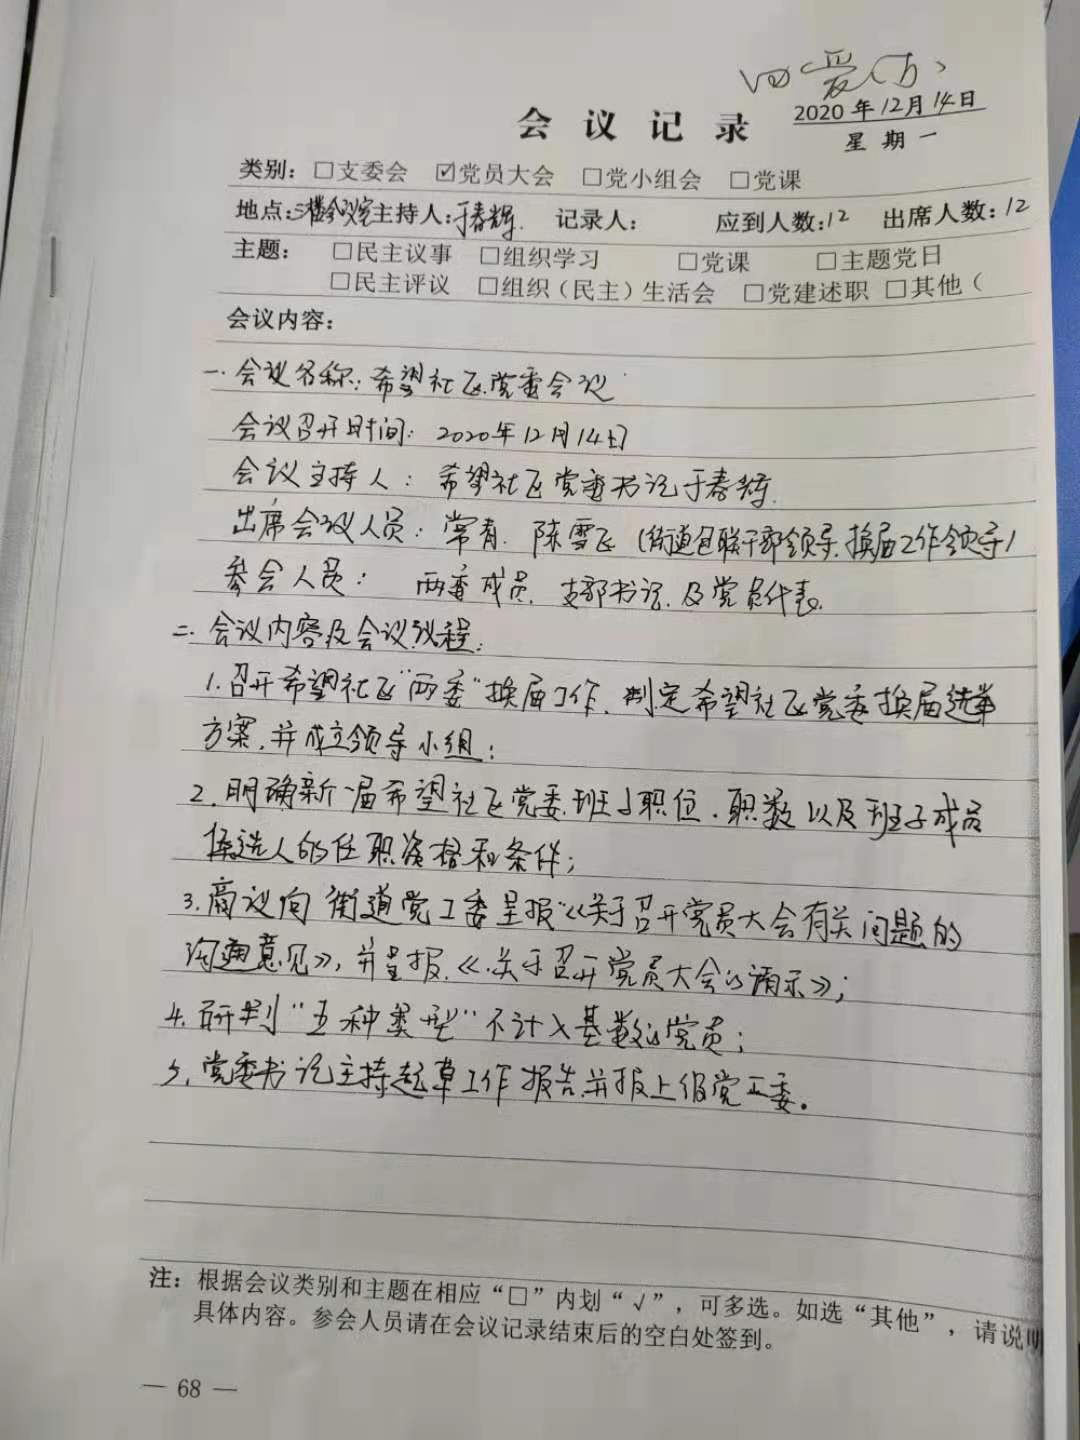 会议记录
2020年12月14日
星期一
类别：□支委会 ☑党员大会 □党小组会 □党课
地点：三楼会议室 主持人：于春辉. 记录人： 应到人数：12 出席人数：12
主题： □民主议事 □组织学习 □党课 □主题党日
□民主评议 □组织（民主）生活会 □党建述职 □其他（
会议内容：
一. 会议名称：希望社区党委会议
会议召开时间：2020年12月14日
会议主持人：希望社区党委书记于春辉.
出席会议人员：常青. 陈雪飞（街道包联干部领导.换届工作领导）
参会人员： 两委成员. 支部书记. 及党员代表.
二. 会议内容及会议议程：
1.召开希望社区“两委”换届工作. 制定希望社区党委换届选举
方案.并成立领导小组；
2.明确新一届希望社区党委.班子职位.职数以及班子成员
候选人的任职资格和条件；
3.商议向街道党工委呈报“《关于召开党员大会有关问题的
沟通意见》，并呈报.《关于召开党员大会的请示》；
4.研判“五种类型”不计入基数的党员；
5.党委书记主持起草工作报告.并报上级党工委。
注：根据会议类别和主题在相应“□”内划“√”，可多选。如选“其他”，请说明
具体内容。参会人员请在会议记录结束后的空白处签到。
— 68 —